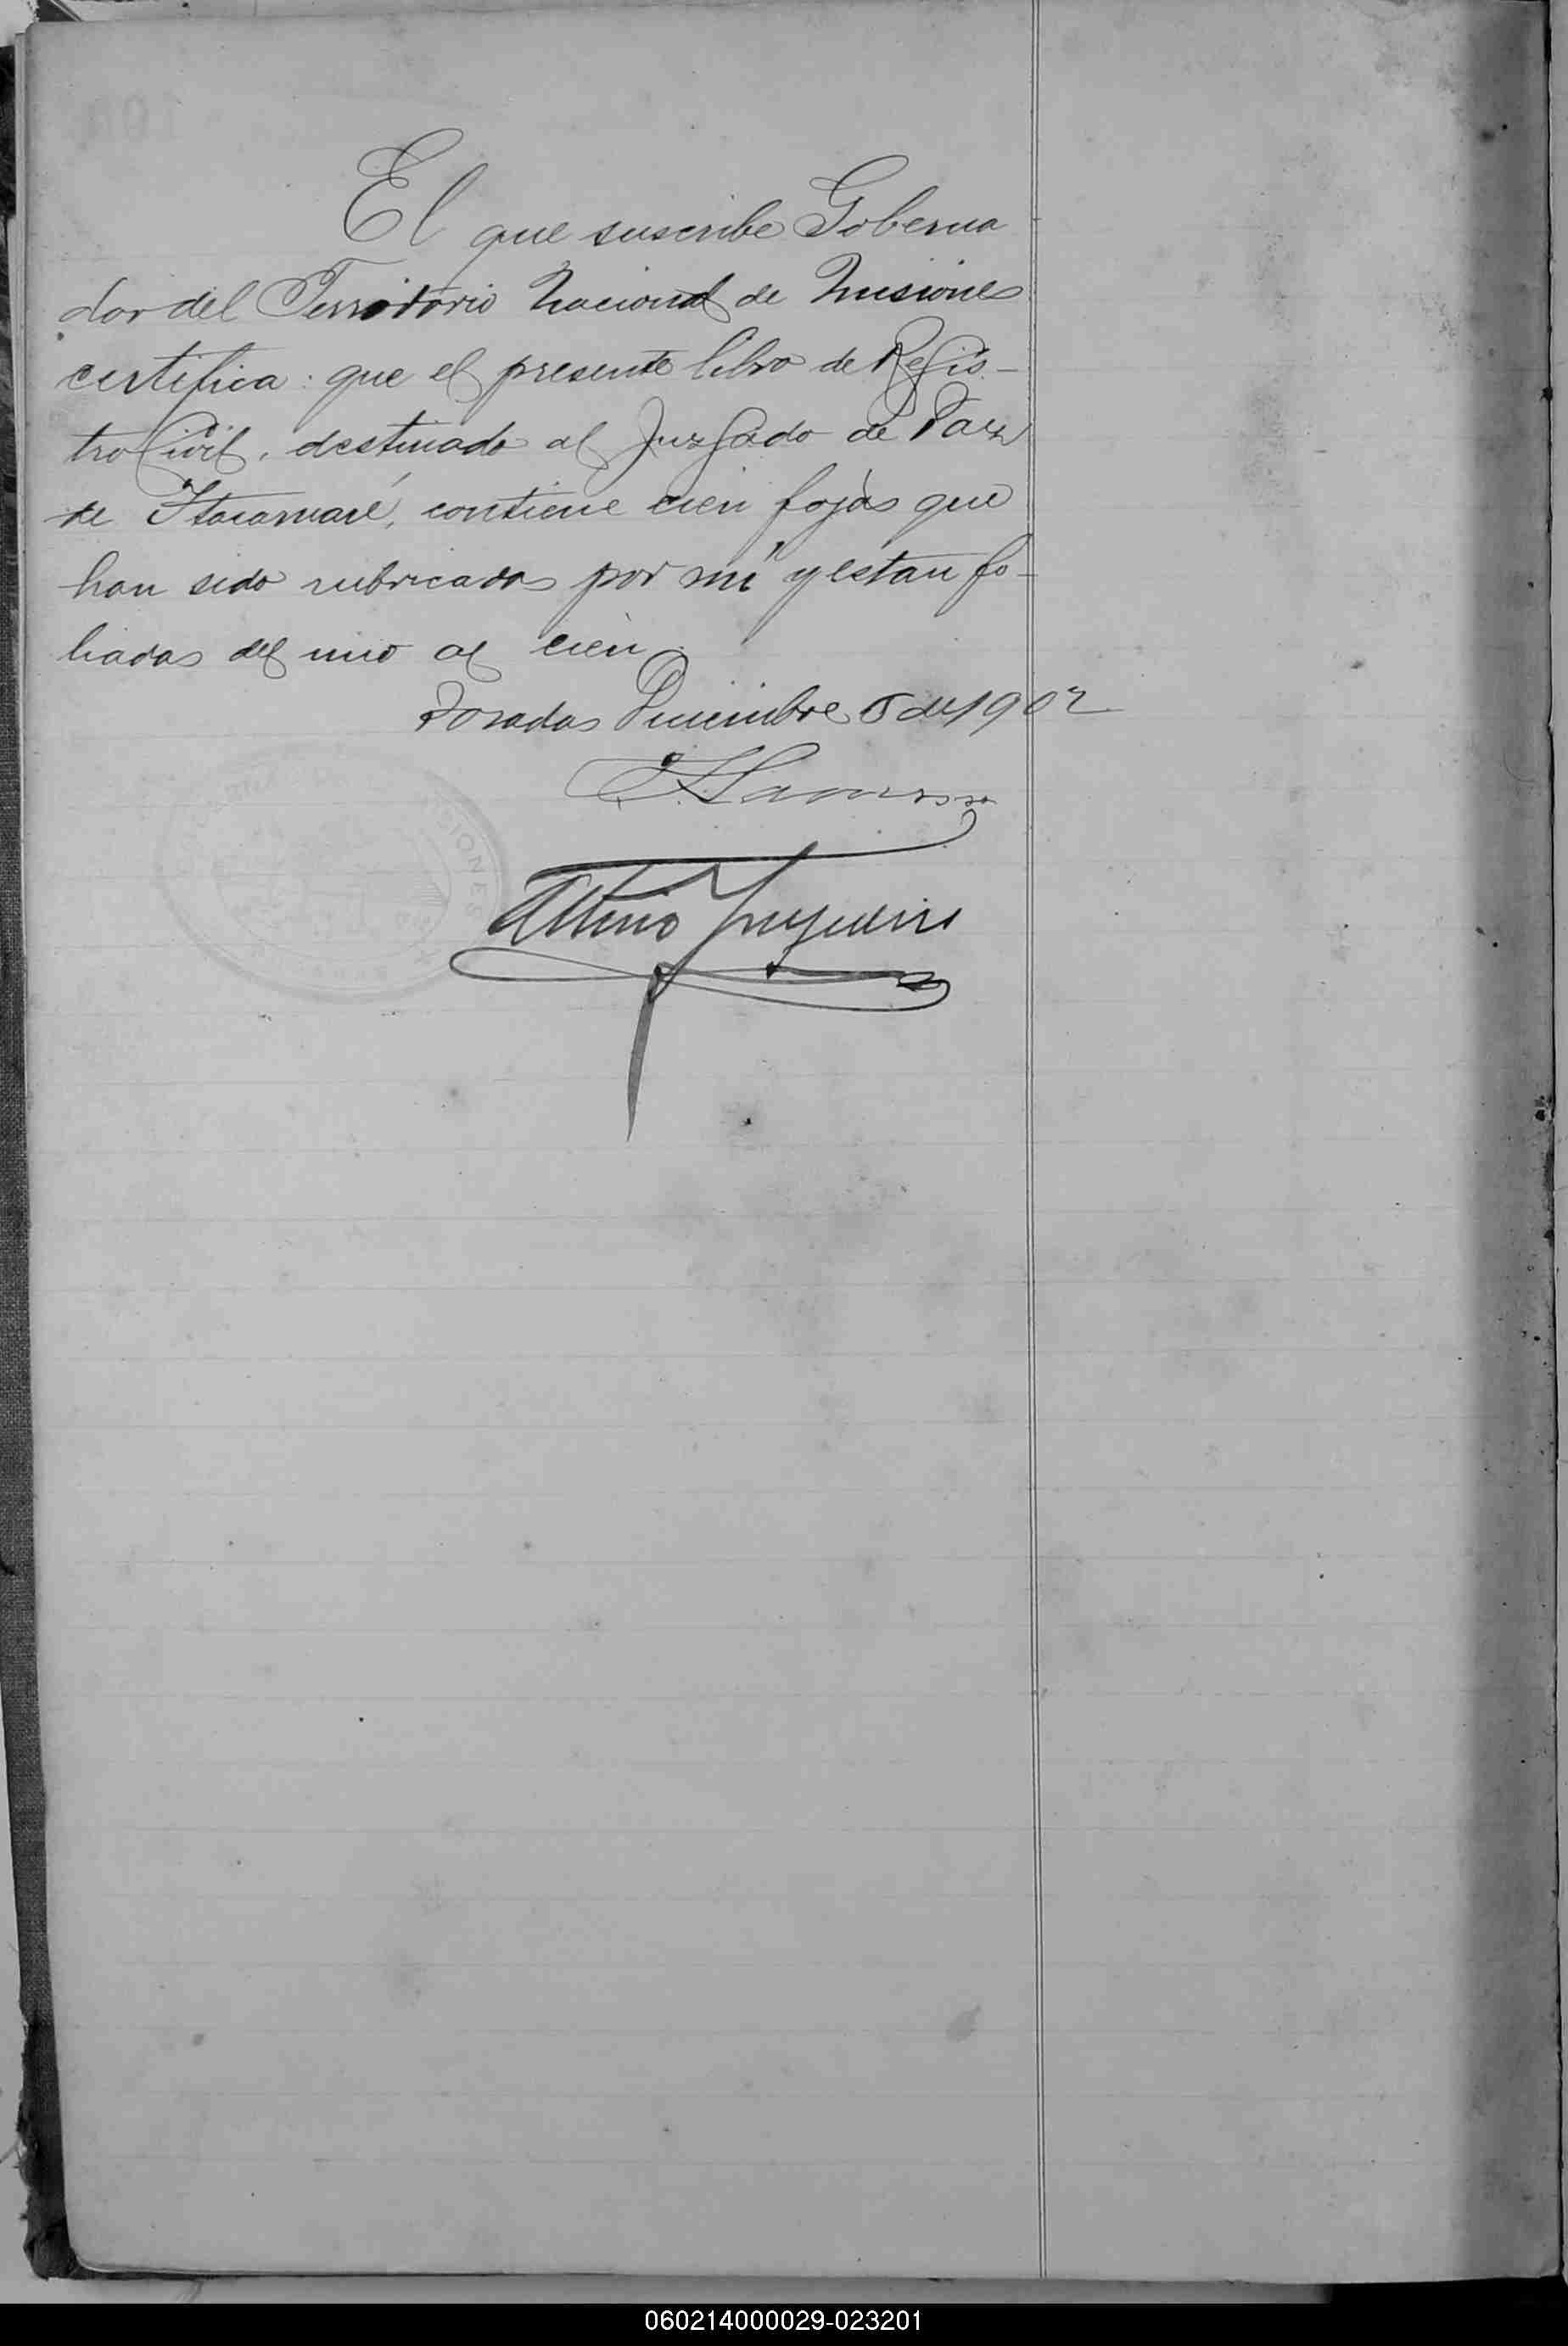 El que suscribe Goberna
dor del Territorio Nacional de Misiones
certifica: que el presente libro de Regis-
tro Civil, destinado al Juzgado de Paz
de Itacaruaré, contiene cien fojas que
han sido rubricadas por mí y estan fo-
liadas del uno al cien.
Posadas Diciembre 5 de 1902
MISIONES
060214000029-023201